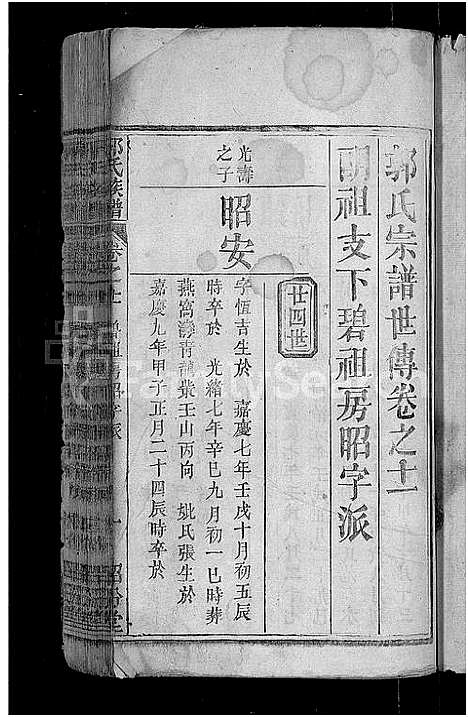 郭氏宗譜世傳卷之十一
胡祖支下碧祖房昭字派
廿四世
光壽之子
昭安
字恆吉生於 嘉慶七年壬戌十月初五辰
時卒於 光緒七年辛巳九月初一巳時葬
燕窩 山丙向 妣氏張生於
嘉慶九年甲子正月二十四辰時卒於
郭氏族譜
卷之十一
房昭字派
一
堂